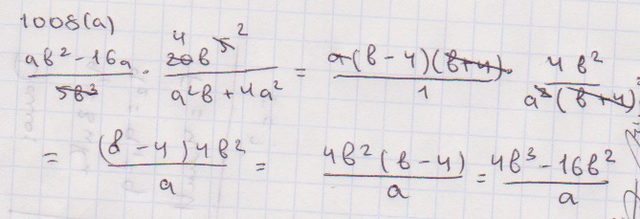 1008(a)
(ab² - 16a)/(5b³) · (4 20b⁵ ²)/(a²b + 4a²) = (a(b - 4)(b + 4))/1 · (4b²)/(a²(b + 4)) =
= ((b - 4)4b²)/a = (4b²(b - 4))/a = (4b³ - 16b²)/a